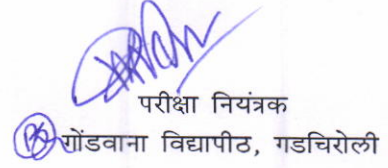 परीक्षा नियंत्रक
गोंडवाना विद्यापीठ, गडचिरोली